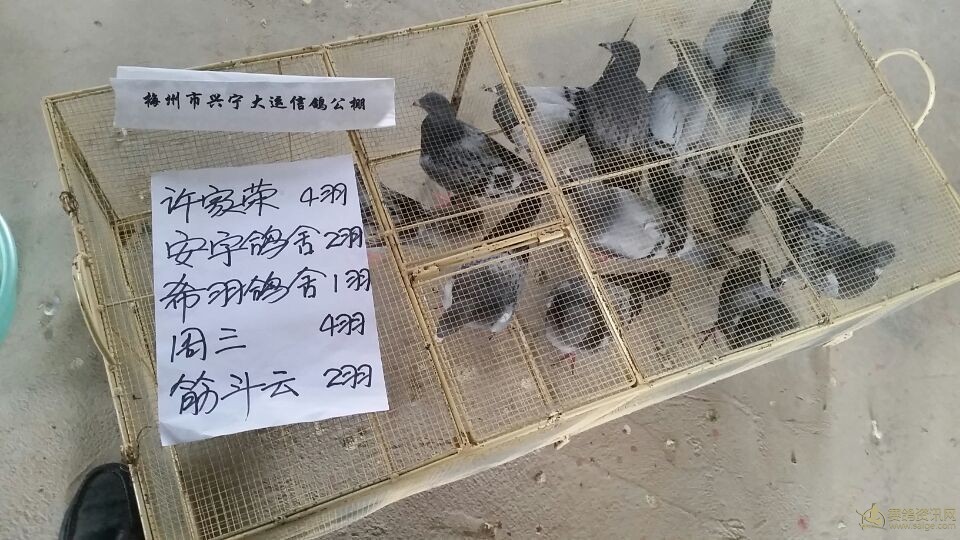 梅州市兴宁大运信鸽公棚
许家荣 4羽
安宇鸽舍 2羽
希羽鸽舍 1羽
周三 4羽
筋斗云 2羽
赛鸽资讯网
www.saige.com